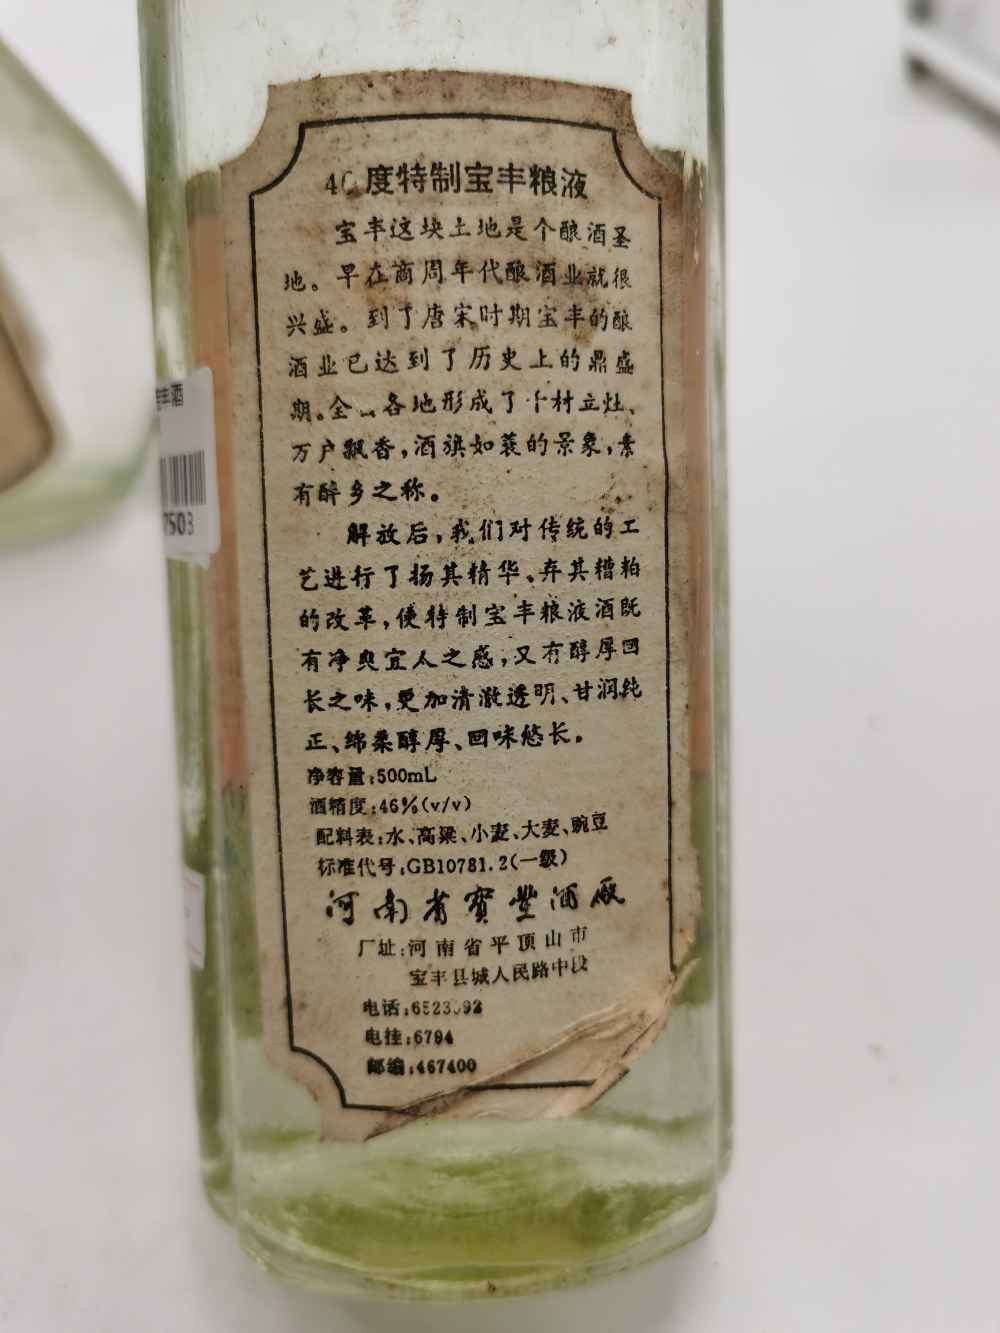 度特制宝丰粮液
宝丰这块土地是个酿酒圣
地。早在商周年代酿酒业就很
兴盛。到了唐宋时期宝丰的酿
酒业已达到了历史上的鼎盛
期。全 各地形成了千村立灶、
万户飘香，酒旗如蓑的景象，素
有醉乡之称。
解放后，我们对传统的工
艺进行了扬其精华、弃其糟粕
的改革，使特制宝丰粮液酒既
有净爽宜人之感，又有醇厚回
长之味，更加清澈透明、甘润纯
正、绵柔醇厚、回味悠长。
净容量：500mL
酒精度：46%(v/v)
配料表：水、高粱、小麦、大麦、豌豆
标准代号：GB10781.2(一级)
河南省寳豐酒厰
厂址：河南省平顶山市
宝丰县城人民路中段
电话：
电挂：6794
邮编：467400
丰酒
7503